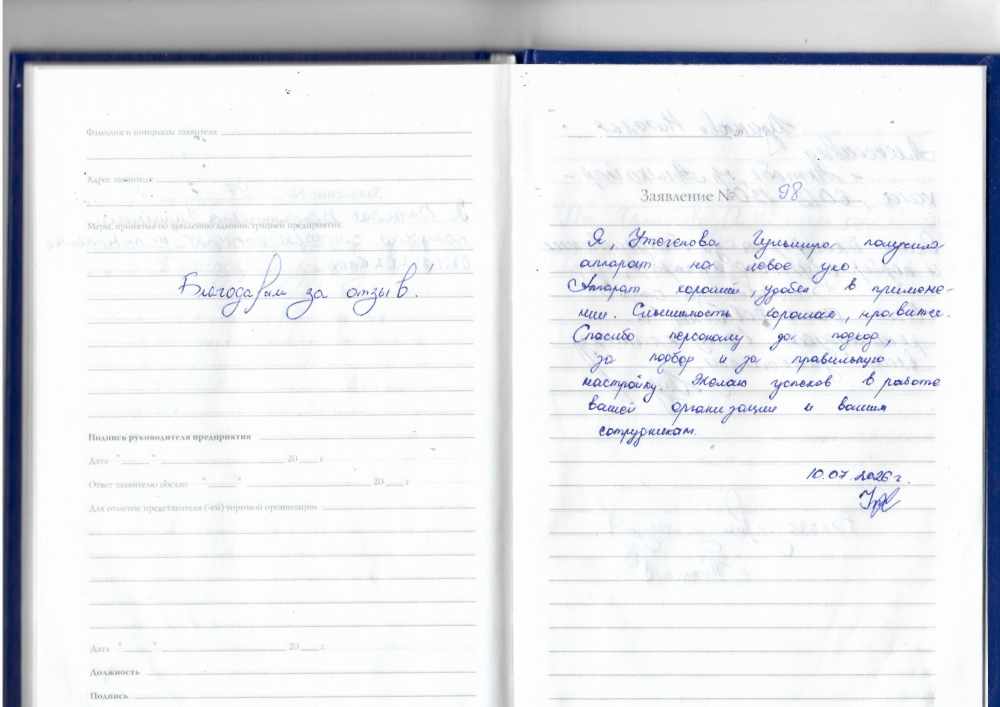 Фамилия и инициалы заявителя
Адрес заявителя
Меры, принятые по заявлению администрацией предприятия
Благодарим за отзыв.
Подпись руководителя предприятия
Дата "____" ____ 20 __ г.
Ответ заявителю послан "____" ____ 20 __ г.
Для отметок представителя (-ей) торговой организации
Дата "____" ____ 20 __ г.
Должность
Подпись
Заявление № 98
Я, Утегенова Гульнара получила
аппарат на левое ухо.
Аппарат хороший, удобен в примене-
нии. Слышимость хорошая, нравится.
Спасибо персоналу за подход,
за подбор и за правильную
настройку. Желаю успехов в работе
вашей организации и вашим
сотрудникам.
10.07.2026 г.